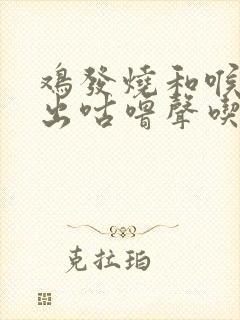 雞發燒和喉
出咕嚕聲喫
克拉珀